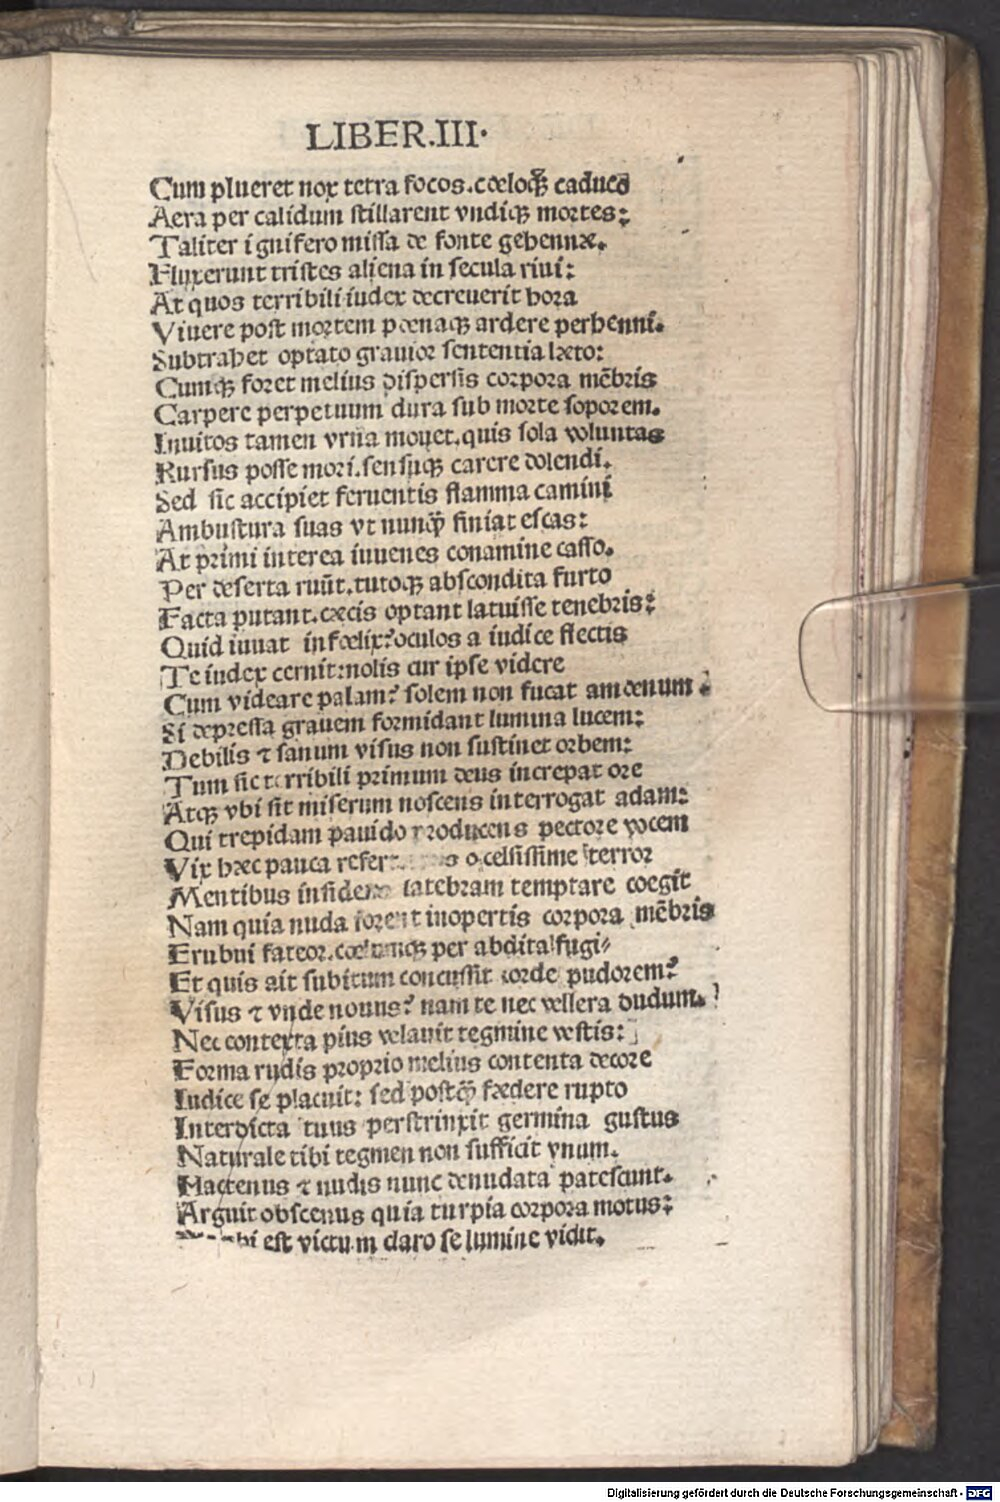 LIBER.III.
Cum plueret nox tetra focos.cœloqꝫ caduco
Aera per calidum stillarent vndiqꝫ mortes:
Taliter ignifero missa de fonte gehennæ.
Fluxerunt tristes aliena in secula riui:
At quos terribili iudex decreuerit hora
Viuere post mortem pœnaqꝫ ardere perhenni.
Subtrahet optato grauior sententia læto:
Cumqꝫ foret melius dispersis corpora mēbris
Carpere perpetuum dura sub morte soporem.
Inuitos tamen vrna mouet.quis sola voluntas
Rursus posse mori.sensuqꝫ carere dolendi.
Sed sic accipiet feruentis flamma camini
Ambustura suas vt nunqȝ finiat escas:
At primi interea iuuenes conamine casso.
Per deserta ruūt.tutoqꝫ abscondita furto
Facta putant.cæcis optant latuisse tenebris:
Quid iuuat infœlix?oculos a iudice flectis
Te iudex cernit:nolis cur ipse videre
Cum videare palam? solem non fucat amœnum.
Si depressa grauem formidant lumina lucem:
Debilis ⁊ sanum visus non sustinet orbem:
Tum sic terribili primum deus increpat ore
Atqꝫ vbi sit miserum noscens interrogat adam:
Qui trepidam pauido producens pectore vocem
Vix hæc pauca refert o celsissime terror
Mentibus insidens latebram temptare coegit
Nam quia nuda forent inopertis corpora mēbris
Erubui fateor. per abdita fugi
Et quis ait subitum concussit corde pudorem?
Visus ⁊ vnde nouus? nam te nec vellera dudum.
Nec contexta pius velauit tegmine vestis:
Forma rudis proprio melius contenta decore
Iudice se placuit: sed postqȝ fædere rupto
Interdicta tuus perstrinxit germina gustus
Naturale tibi tegmen non sufficit vnum.
Hactenus ⁊ nudis nunc denudata patescunt.
Arguit obscenus quia turpia corpora motus:
est victum claro se lumine vidit.
Digitalisierung gefördert durch die Deutsche Forschungsgemeinschaft - DFG